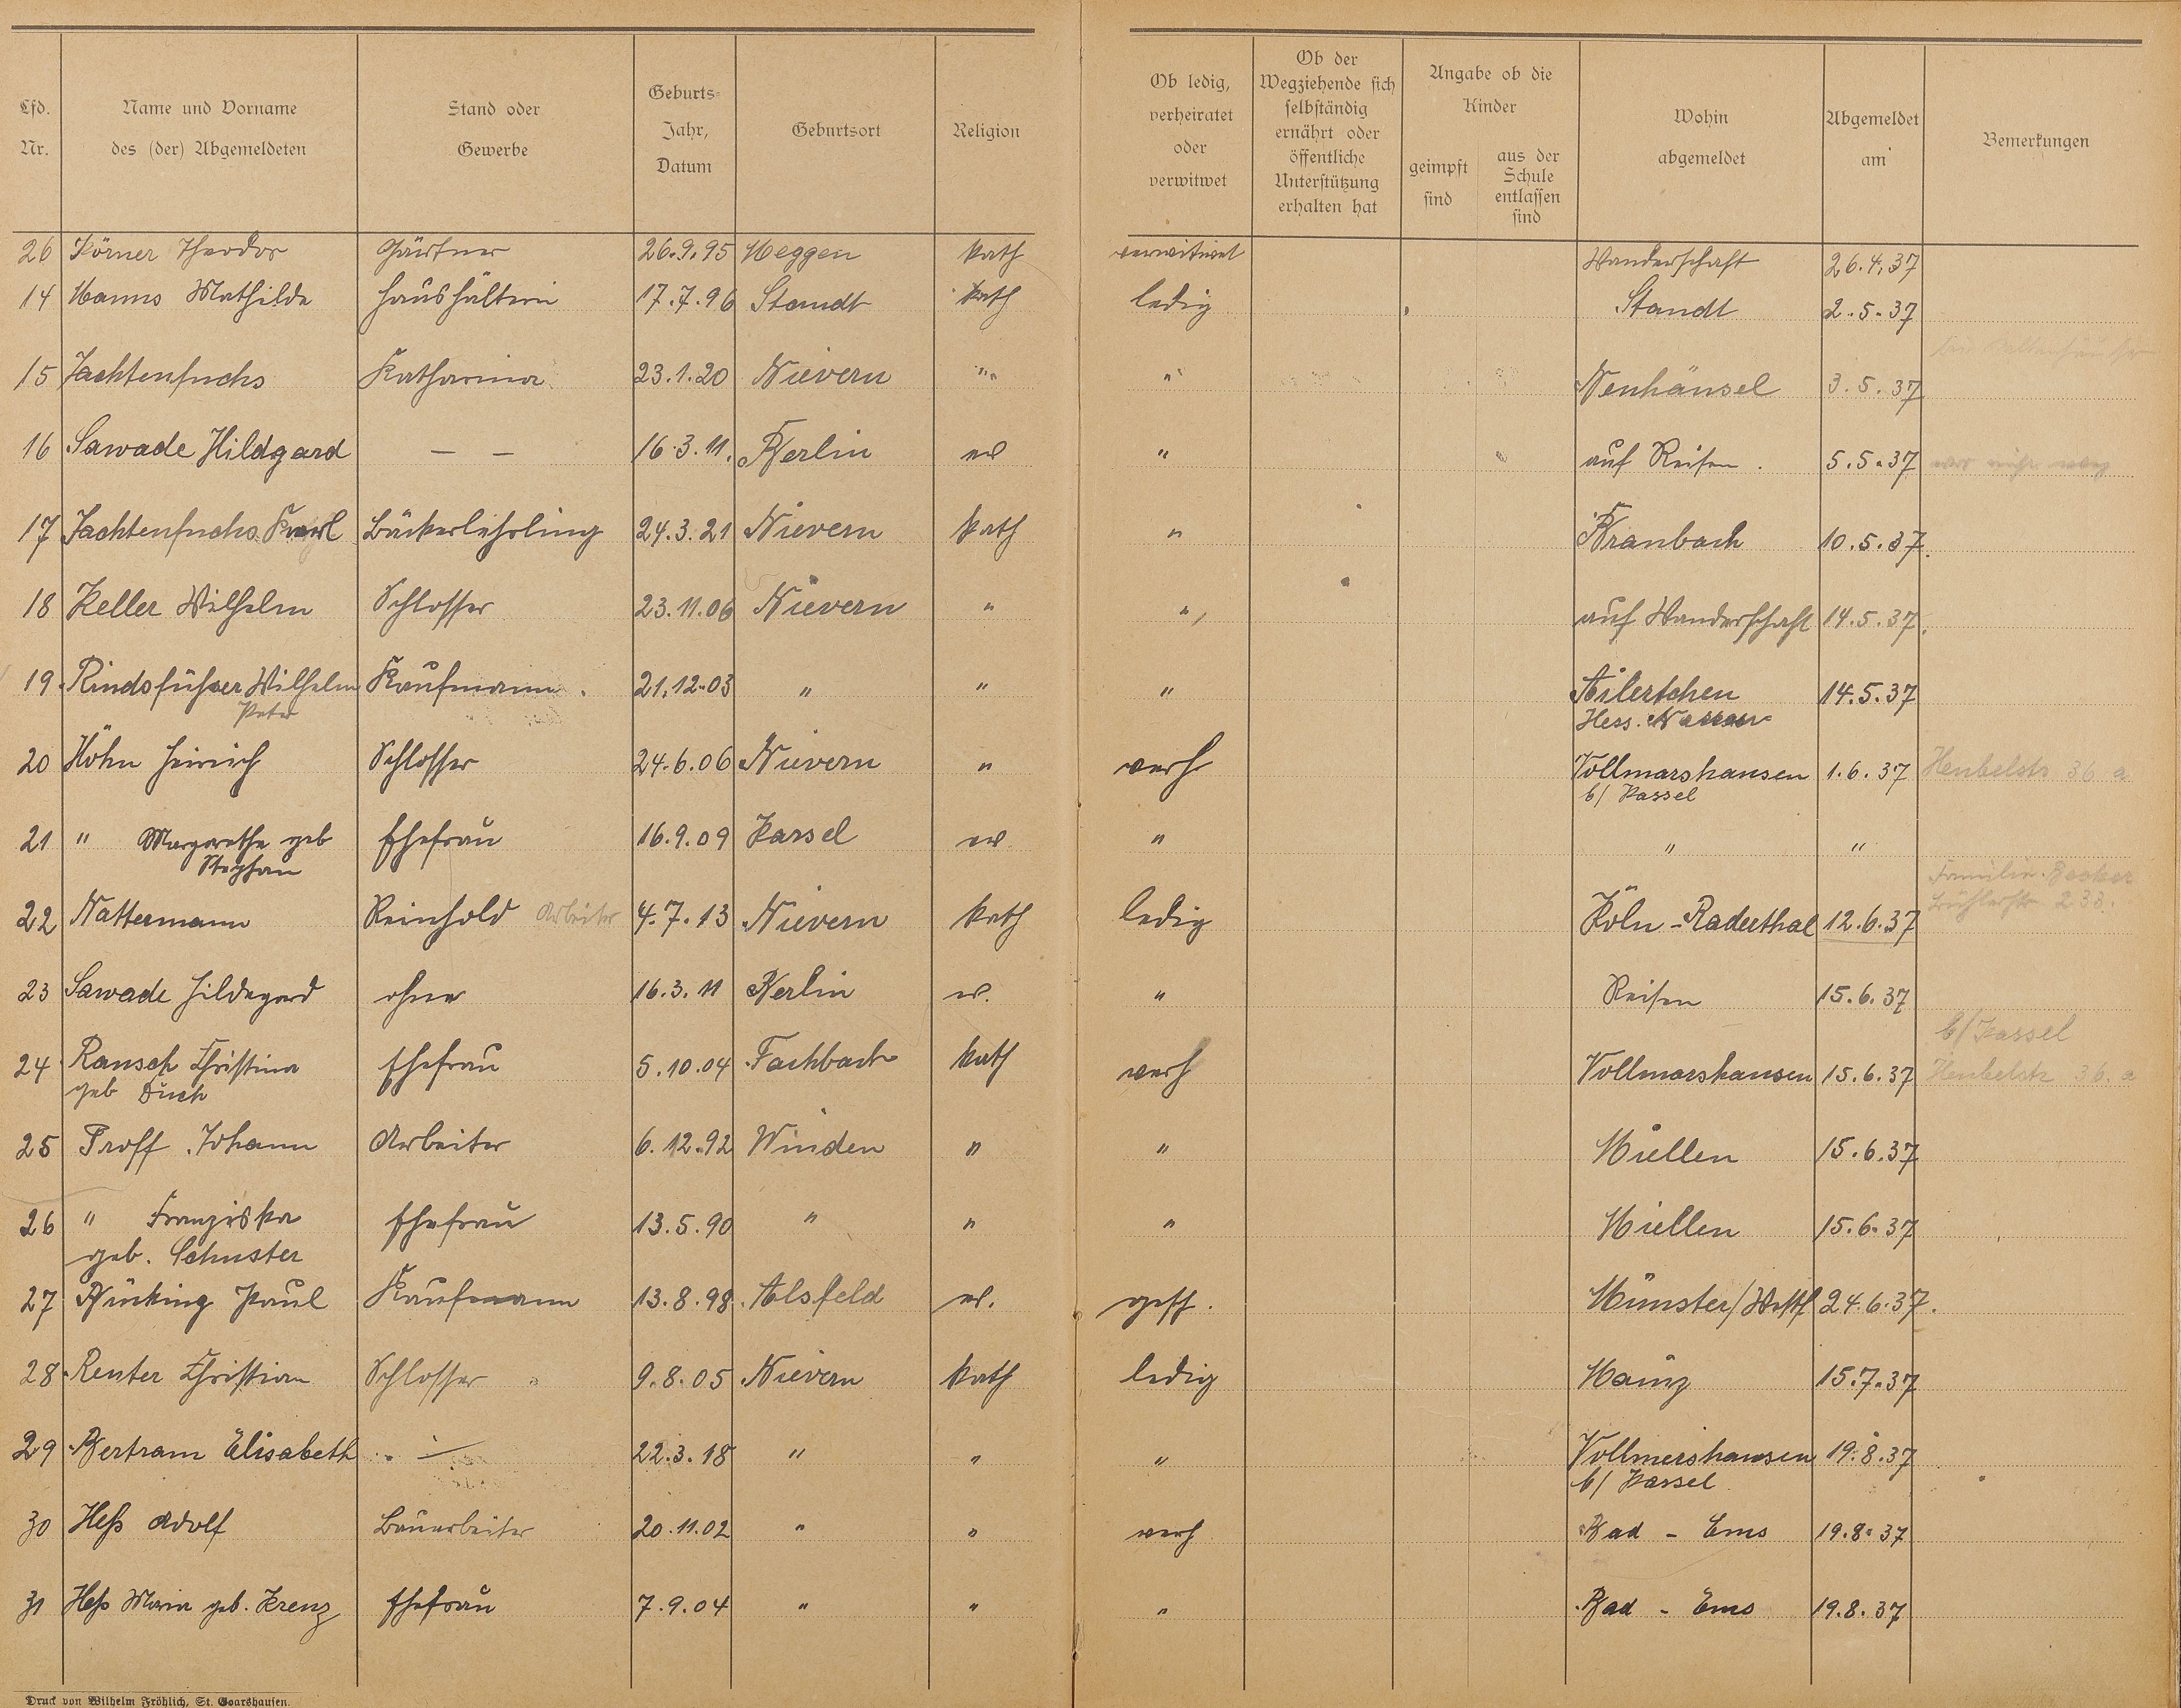 Lfd. Nr.
Name und Vorname des (der) Abgemeldeten
Stand oder Gewerbe
Geburts- Jahr, Datum
Geburtsort
Religion
Ob ledig, verheiratet oder verwitwet
Ob der Wegziehende sich selbständig ernährt oder öffentliche Unterstützung erhalten hat
Angabe ob die Kinder
geimpft sind
aus der Schule entlassen sind
Wohin abgemeldet
Abgemeldet am
Bemerkungen
26 Körner Theodor Gärtner 26.9.95 Meggen kath verwitwet Wanderschaft 26.4.37
14 Manns Mathilde Haushälterin 17.7.96 Staudt kath ledig Staudt 2.5.37
15 Jachtenfuchs Katharina 23.1.20 Nievern " " Neuhäusel 3.5.37
16 Sawade Hildgard — — 16.3.11. Berlin ev " auf Reisen. 5.5.37 war nicht weg
17 Jachtenfuchs Karl Bäckerlehrling 24.3.21 Nievern kath " Branbach 10.5.37.
18 Keller Wilhelm Schlosser 23.11.06 Nievern " " auf Wanderschaft 14.5.37.
19. Rindsfüßer Wilhelm Kaufmann. 21.12.03 " " " Ailertchen 14.5.37
Peter Hess. Nassau
20 Höhn Heinrich Schlosser 24.6.06 Nievern " verh Vollmarshausen 1.6.37 Heubelstr 36 a
b/ Kassel
21 " Margarethe geb Ehefrau 16.9.09 Kassel ev " " "
Stephan
Familie Becker
22 Nattermann Reinhold Arbeiter 4.7.13 Nievern kath ledig Köln-Raderthal 12.6.37 Brühlerstr 233.
23 Sawade Hildegard ohne 16.3.11 Berlin ev. " Reisen 15.6.37
b/Kassel
24 Rausch Christina Ehefrau 5.10.04 Fachbach kath verh Vollmarshausen 15.6.37 Heubelstr 36. a
geb Duch
25 Proff Johann Arbeiter 6.12.92 Winden " " Miellen 15.6.37
26 " Franziska Ehefrau 13.5.90 " " " Miellen 15.6.37
geb. Schuster
27 Bücking Paul Kaufmann 13.8.98. Alsfeld ev. gesch. Münster/Westf 24.6.37.
28. Reuter Christian Schlosser 9.8.05 Nievern kath ledig Mainz 15.7.37
29 Bertram Elisabeth — 22.3.18 " " " Vollmershausen 19.8.37
b/ Kassel
30 Heß Adolf Bauarbeiter 20.11.02 " " verh Bad - Ems 19.8.37
31 Heß Maria geb. Krenz Ehefrau 7.9.04 " " " Bad - Ems 19.8.37
Druck von Wilhelm Fröhlich, St. Goarshausen.